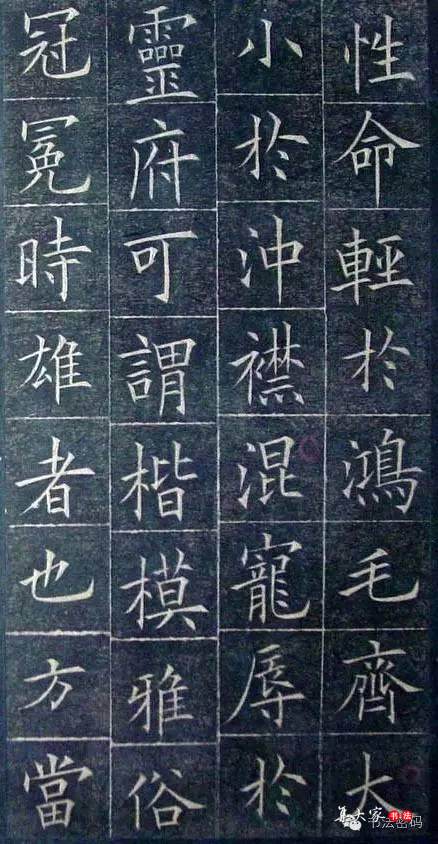 性命輕於鴻毛齊大
小於沖襟混寵辱於
靈府可謂楷模雅俗
冠冕時雄者也方當
集大家 书法
书法密码